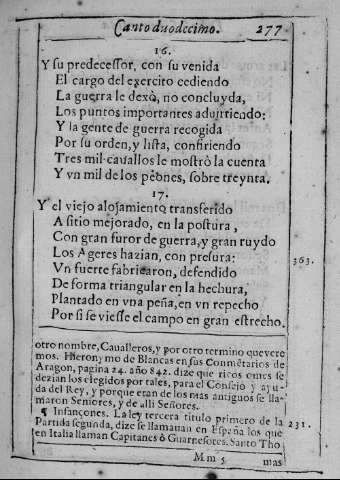 Canto duodecimo. 277
16.
Y su predecessor, con su venida
El cargo del exercito cediendo
La guerra le dexò, no concluyda,
Los puntos importantes aduirtiendo:
Y la gente de guerra recogida
Por su orden, y lista, confiriendo
Tres mil cauallos le mostrò la cuenta
Y vn mil de los peones, sobre treynta.
17.
Y el viejo alojamiento transferido
A sitio mejorado, en la postura,
Con gran furor de guerra, y gran ruydo
Los Ageres hazian, con presura:
Vn fuerte fabricaron, defendido
De forma triangular en la hechura,
Plantado en vna peña, en vn repecho
Por si se viesse el campo en gran estrecho.
363.
otro nombre, Caualleros, y por otro termino que vere
mos. Hieronymo de Blancas en sus Cõmẽtarios de
Aragon, pagina 24. año 842. dize que ricos omes se
dezian los elegidos por tales, para el Consejo y ayu-
da del Rey, y porque eran de los mas antiguos se lla-
maron Seniores, y de alli Señores.
¶ Infançones. La ley tercera titulo primero de la
Partida segunda, dize se llamauan en España los que
en Italia llaman Capitanes ò Guarnesores. Santo Tho
231.
Mm 5 mas